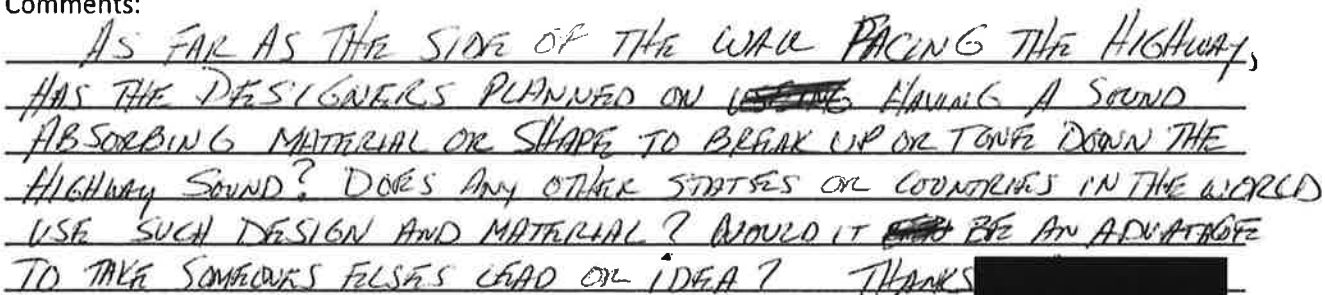 Comments:
AS FAR AS THE SIDE OF THE WALL FACING THE HIGHWAY,
HAS THE DESIGNERS PLANNED ON HAVING A SOUND
ABSORBING MATERIAL OR SHAPE TO BREAK UP OR TONE DOWN THE
HIGHWAY SOUND? DOES ANY OTHER STATES OR COUNTRIES IN THE WORLD
USE SUCH DESIGN AND MATERIAL? WOULD IT BE AN ADVATAGE
TO TAKE SOMEONES ELSES LEAD OR IDEA? THANKS